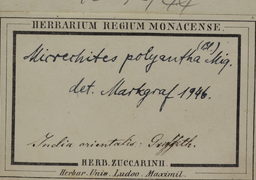 HERBARIUM REGIUM MONACENSE.
Micrechites polyantha (Bl.) Miq.
det. Markgraf 1946.
India orientalis: Griffith.
HERB. ZUCCARINII
Herbar. Univ. Ludov. Maximil.